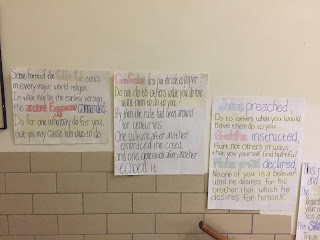 Some form of the Golden Rule exists
in every major world religion.
In what may be the earliest version
the ancient Egyptians commanded
Do for one who may do for you,
that you may cause him thus to do.
Confucius
Do not do to others what you do not
want them to do to you!
By then the rule had been around
for centuries.
One culture after another
embraced the creed,
and one generation after another
echoed it.
Jesus preached,
Do to others what you would
have them do to you.
Buddha instructed,
Hurt not others in ways
that you yourself find hurtful.
Muhammad declared,
No one of you is a believer
until he desires for his
brother that which he
desires for himself.
and
the